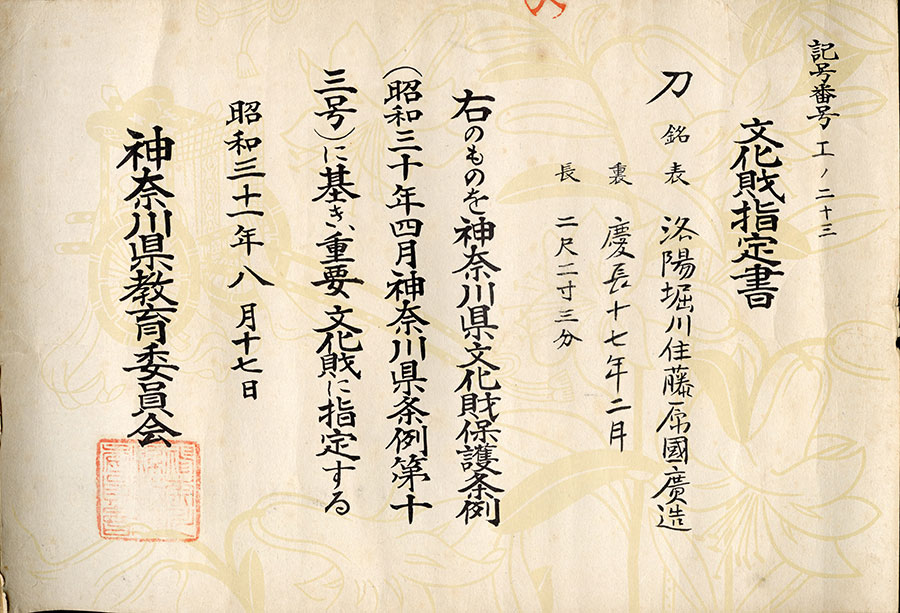 記号番号 工ノ二十三
文化財指定書
刀 銘 表 洛陽堀川住藤原國廣造
裏 慶長十七年二月
長 二尺二寸三分
右のものを神奈川県文化財保護条例
(昭和三十年四月神奈川県条例第十
三号)に基き、重要文化財に指定する
昭和三十一年八月十七日
神奈川県教育委員会